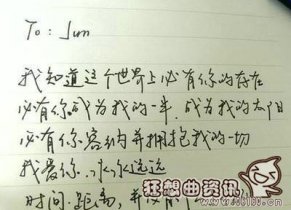 To：Jun
我知道这个世界上必有你的存在
必有你成为我的一半，成为我的太阳
必有你容纳并拥抱我的一切
我爱你，永永远远
时间，距离，并
狂想曲资讯